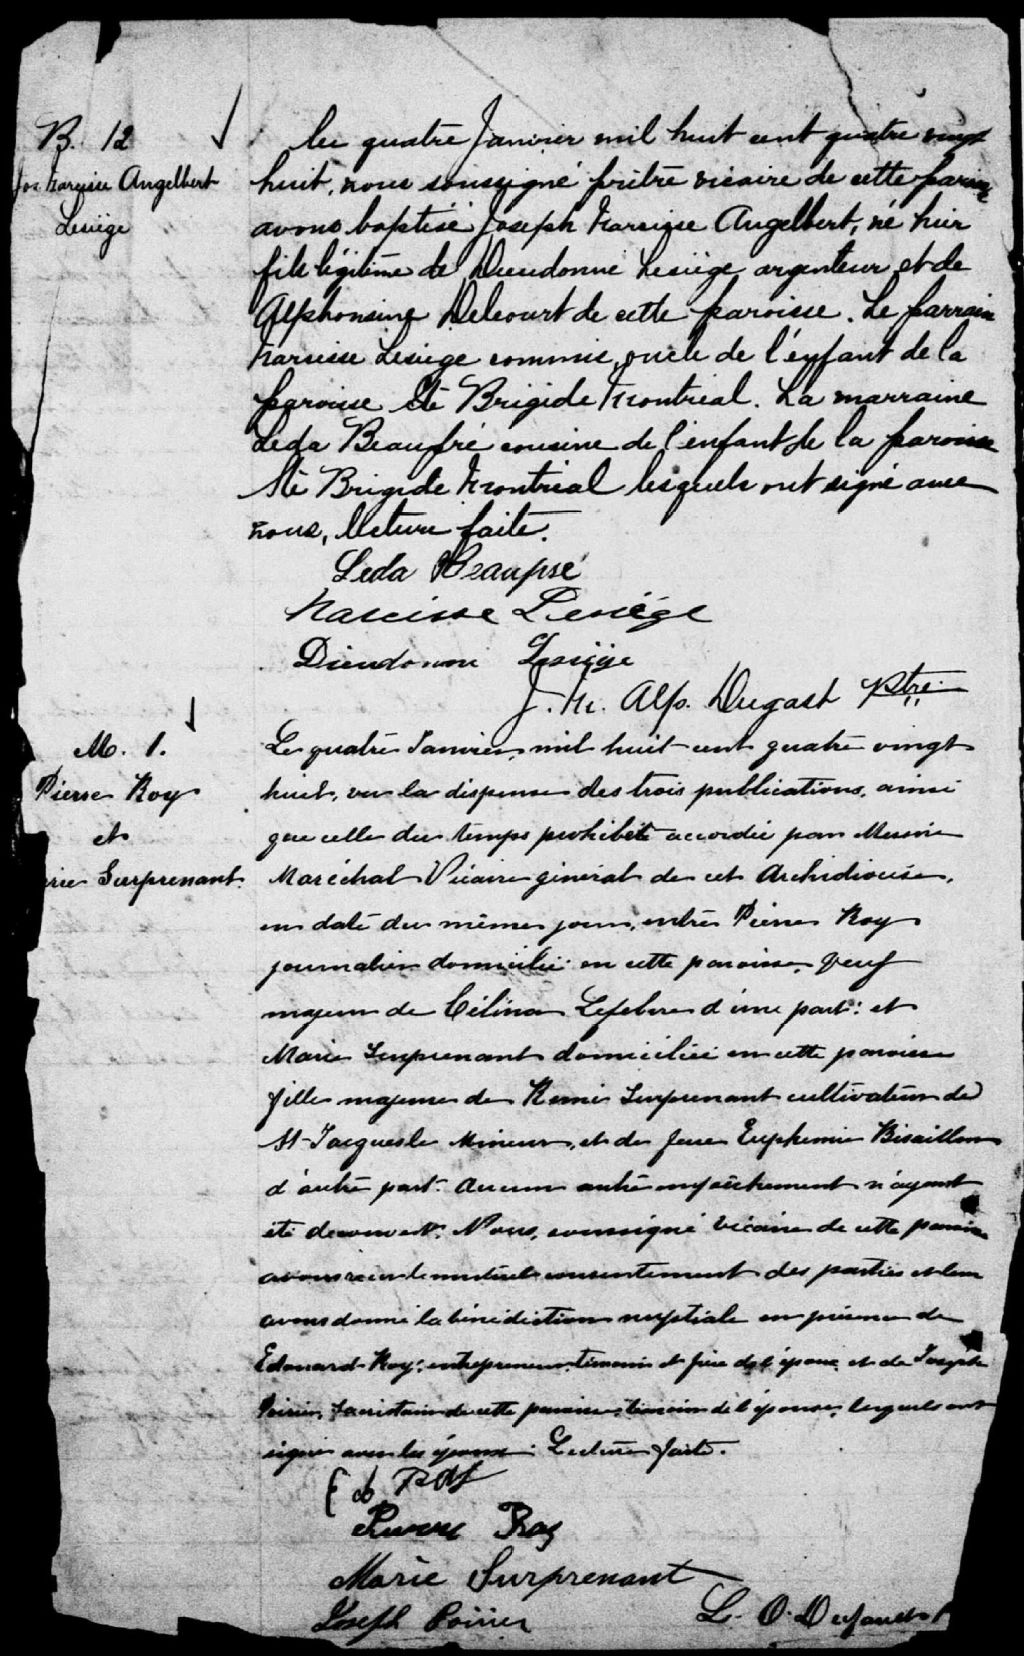 B. 12
Jos. Narcisse Angelbert
Lesiège
Le quatre Janvier mil huit cent quatre vingt
huit, nous soussigné prêtre vicaire de cette paroisse
avons baptisé Joseph Narcisse Angelbert, né hier
fils légitime de Dieudonné Lesiège argenteur et de
Alphonsine Delcourt de cette paroisse. Le parrain
Narcisse Lesiège commis, oncle de l'enfant de la
paroisse Ste Brigide Montréal. La marraine
Leda Beaupré cousine de l'enfant de la paroisse
Ste Brigide Montréal lesquels ont signé avec
nous, lecture faite.
Leda Beaupré
Narcisse Lesiège
Dieudonné Lesiège
J. N. Alp. Dugast Ptre
M. 1.
Pierre Roy
et
Marie Surprenant
Le quatre Janvier, mil huit cent quatre vingt
huit, vu la dispense des trois publications, ainsi
que celle du temps prohibé accordée par Messire
Maréchal Vicaire général de cet Archidiocèse,
en date du même jour, entre Pierre Roy
journalier domicilié en cette paroisse, veuf
majeur de Célina Lefebvre d'une part: et
Marie Surprenant domiciliée en cette paroisse
fille majeure de Remi Surprenant cultivateur de
St-Jacques le Mineur, et de feue Euphémie Bisaillon
d'autre part. Aucun autre empêchement n'ayant
été découvert. Nous, soussigné Vicaire de cette paroisse
avons reçu le mutuel consentement des parties et leur
avons donné la bénédiction nuptiale en présence de
Edouard Roy, entrepreneur, témoin et père de l'époux, et de Joseph
Poirier, Sacristain de cette paroisse, témoin de l'épouse, lesquels ont
signé avec les époux. Lecture faite.
Ed Roy
Pierre Roy
Marie Surprenant
Joseph Poirier
L. O.